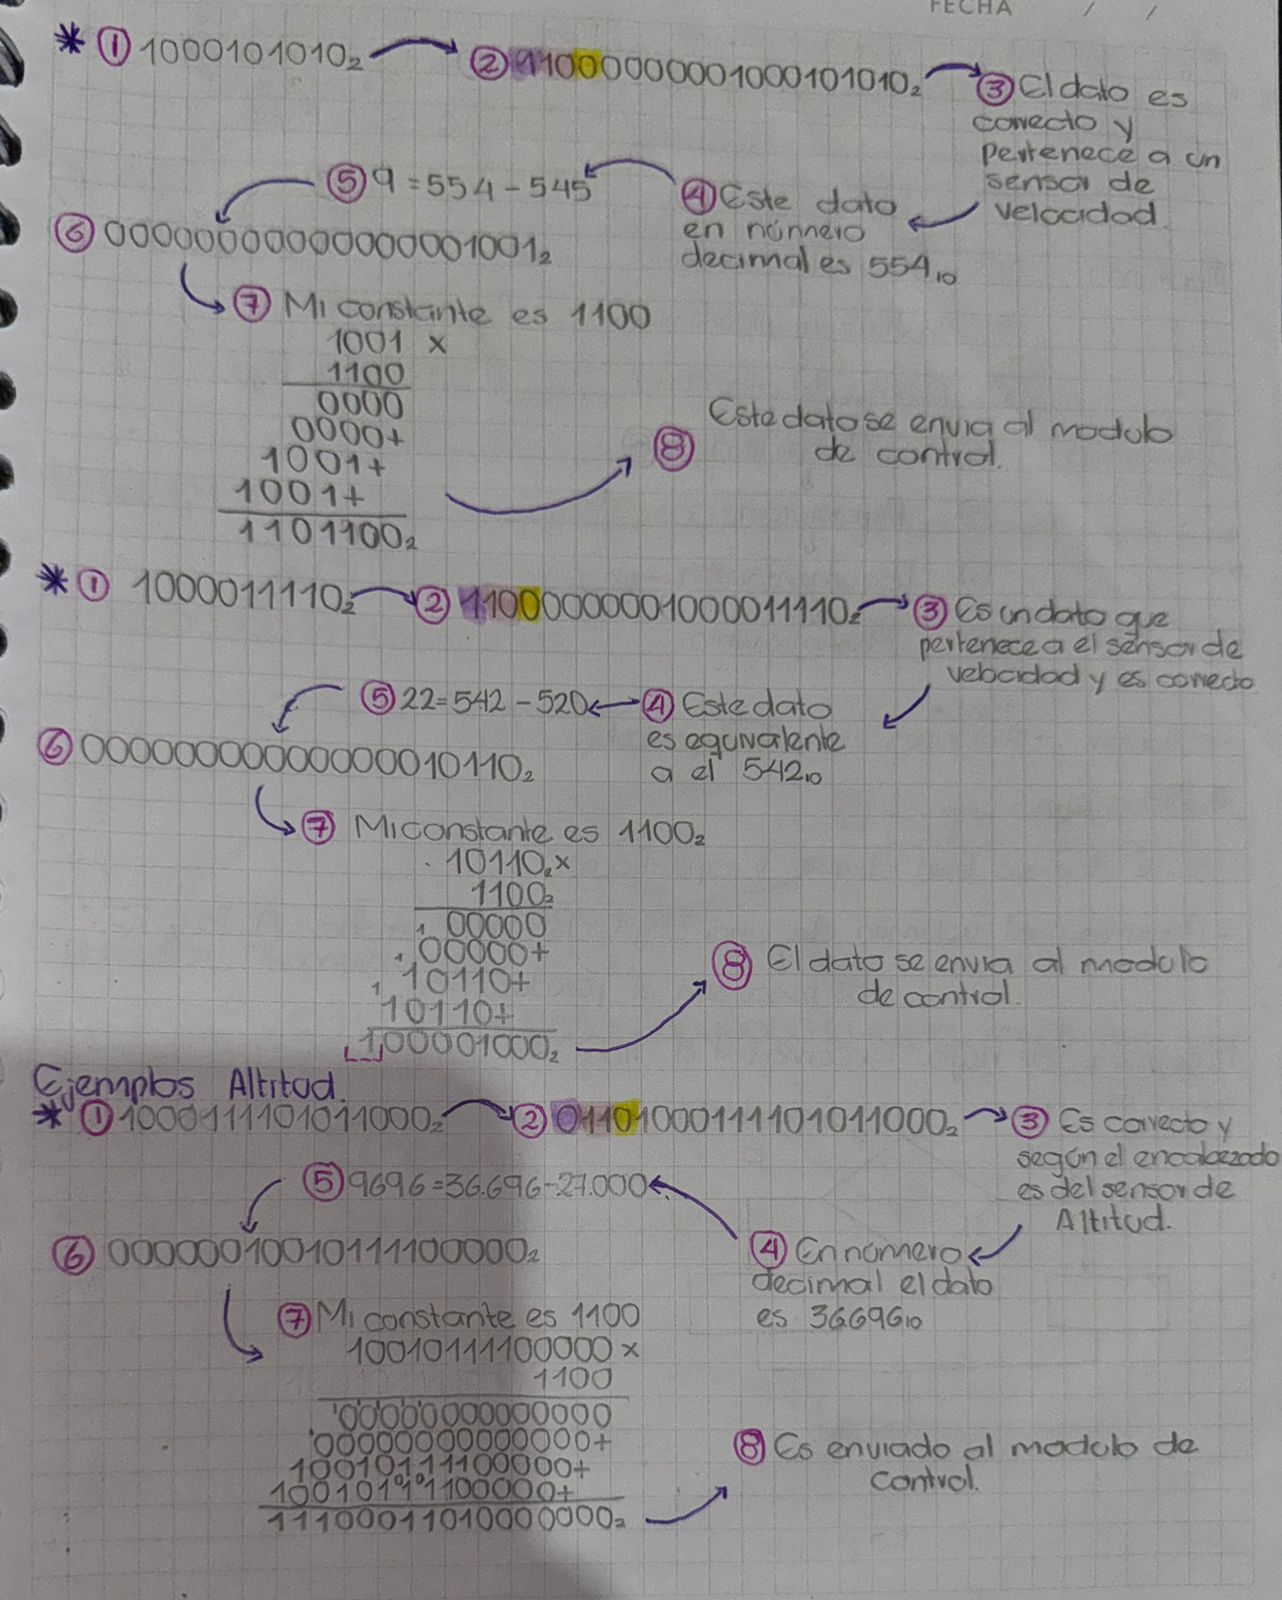 FECHA / /
* ① 1000101010₂ ② 110000000001000101010₂
③ El dato es
correcto y
pertenece a un
sensor de
velocidad.
④ Este dato
en número
decimal es 554₁₀
⑤ 9 = 554 - 545
⑥ 00000000000000001001₂
⑦ Mi constante es 1100
1001 x
1100
0000
0000+
1001+
1001+
1101100₂
⑧ Este dato se envia al modulo
de control.
* ① 1000011110₂ ② 11000000001000011110₂
③ Es un dato que
pertenece a el sensor de
velocidad y es correcto
④ Este dato
es equivalente
a el 542₁₀
⑤ 22 = 542 - 520
⑥ 00000000000000010110₂
⑦ Mi constante es 1100₂
10110₂ x
1100₂
00000
00000+
10110+
10110+
100001000₂
⑧ El dato se envia al modulo
de control.
Ejemplos Altitud.
* ① 1000111101011000₂ ② 01101000111101011000₂
③ Es correcto y
según el encabezado
es del sensor de
Altitud.
④ En número
decimal el dato
es 36696₁₀
⑤ 9696 = 36.696 - 27.000
⑥ 00000010010111100000₂
⑦ Mi constante es 1100
10010111100000 x
1100
00000000000000
00000000000000+
10010111100000+
10010111100000+
11100011010000000₂
⑧ Es enviado al modulo de
control.